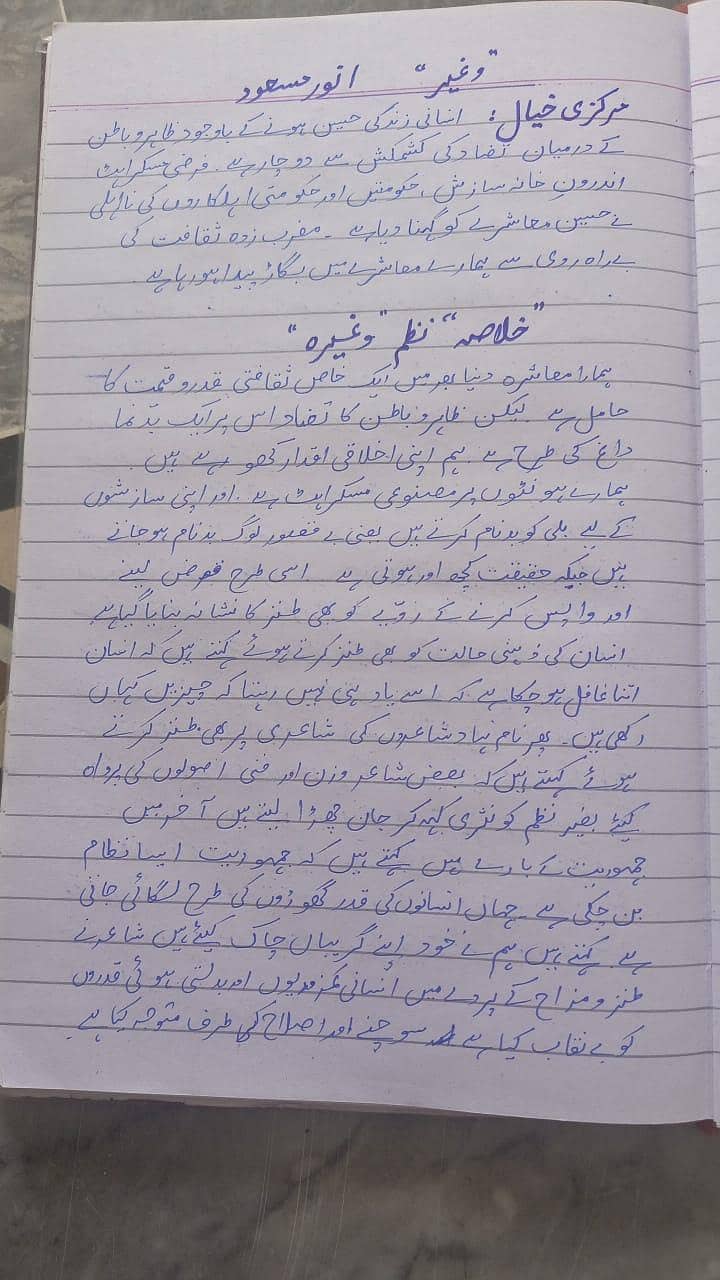 "وغیر" انور مسعود
مرکزی خیال: انسانی زندگی حسین ہونے کے باوجود ظاہر و باطن
کے درمیان تضاد کی کشمکش سے دوچار ہے۔ فرضی مسکراہٹ
اندرونِ خانہ سازش، حکومتیں اور حکومتی اہلکاروں کی نااہلی
نے حسین معاشرے کو گہنا دیا ہے۔ مغرب زدہ ثقافت کی
بے راہ روی سے ہمارے معاشرے میں بگاڑ پیدا ہو رہا ہے۔
"خلاصہ" نظم "وغیرہ"
ہمارا معاشرہ دنیا بھر میں ایک خاص ثقافتی قدروقیمت کا
حامل ہے۔ لیکن ظاہر و باطن کا تضاد اس پر ایک بدنما
داغ کی طرح ہے۔ ہم اپنی اخلاقی اقدار کھو رہے ہیں۔
ہمارے ہونٹوں پر مصنوعی مسکراہٹ ہے۔ اور اپنی سازشوں
کے لیے بلی کو بدنام کرتے ہیں یعنی بے قصور لوگ بدنام ہو جاتے
ہیں جبکہ حقیقت کچھ اور ہوتی ہے۔ اسی طرح قرض لینے
اور واپس کرنے کے رویّے کو بھی طنز کا نشانہ بنایا گیا ہے۔
انسان کی ذہنی حالت کو بھی طنز کرتے ہوئے کہتے ہیں کہ انسان
اتنا غافل ہو چکا ہے کہ اسے یاد ہی نہیں رہتا کہ چیزیں کہاں
رکھی ہیں۔ پھر نام نہاد شاعروں کی شاعری پر بھی طنز کرتے
ہوئے کہتے ہیں کہ بعض شاعر وزن اور فنی اصولوں کی پرواہ
کیئے بغیر نظم کو نثری کہہ کر جان چھڑا لیتے ہیں آخر میں
جمہوریت کے بارے میں کہتے ہیں کہ جمہوریت ایسا نظام
بن چکی ہے جہاں انسانوں کی قدر گھوڑوں کی طرح لگائی جاتی
ہے۔ کہتے ہیں ہم نے خود اپنے گریباں چاک کیئے ہیں شاعر نے
طنز و مزاح کے پردے میں انسانی کمزوریوں اور بدلتی ہوئی قدروں
کو بے نقاب کیا ہے سوچنے اور اصلاح کی طرف متوجہ کیا ہے